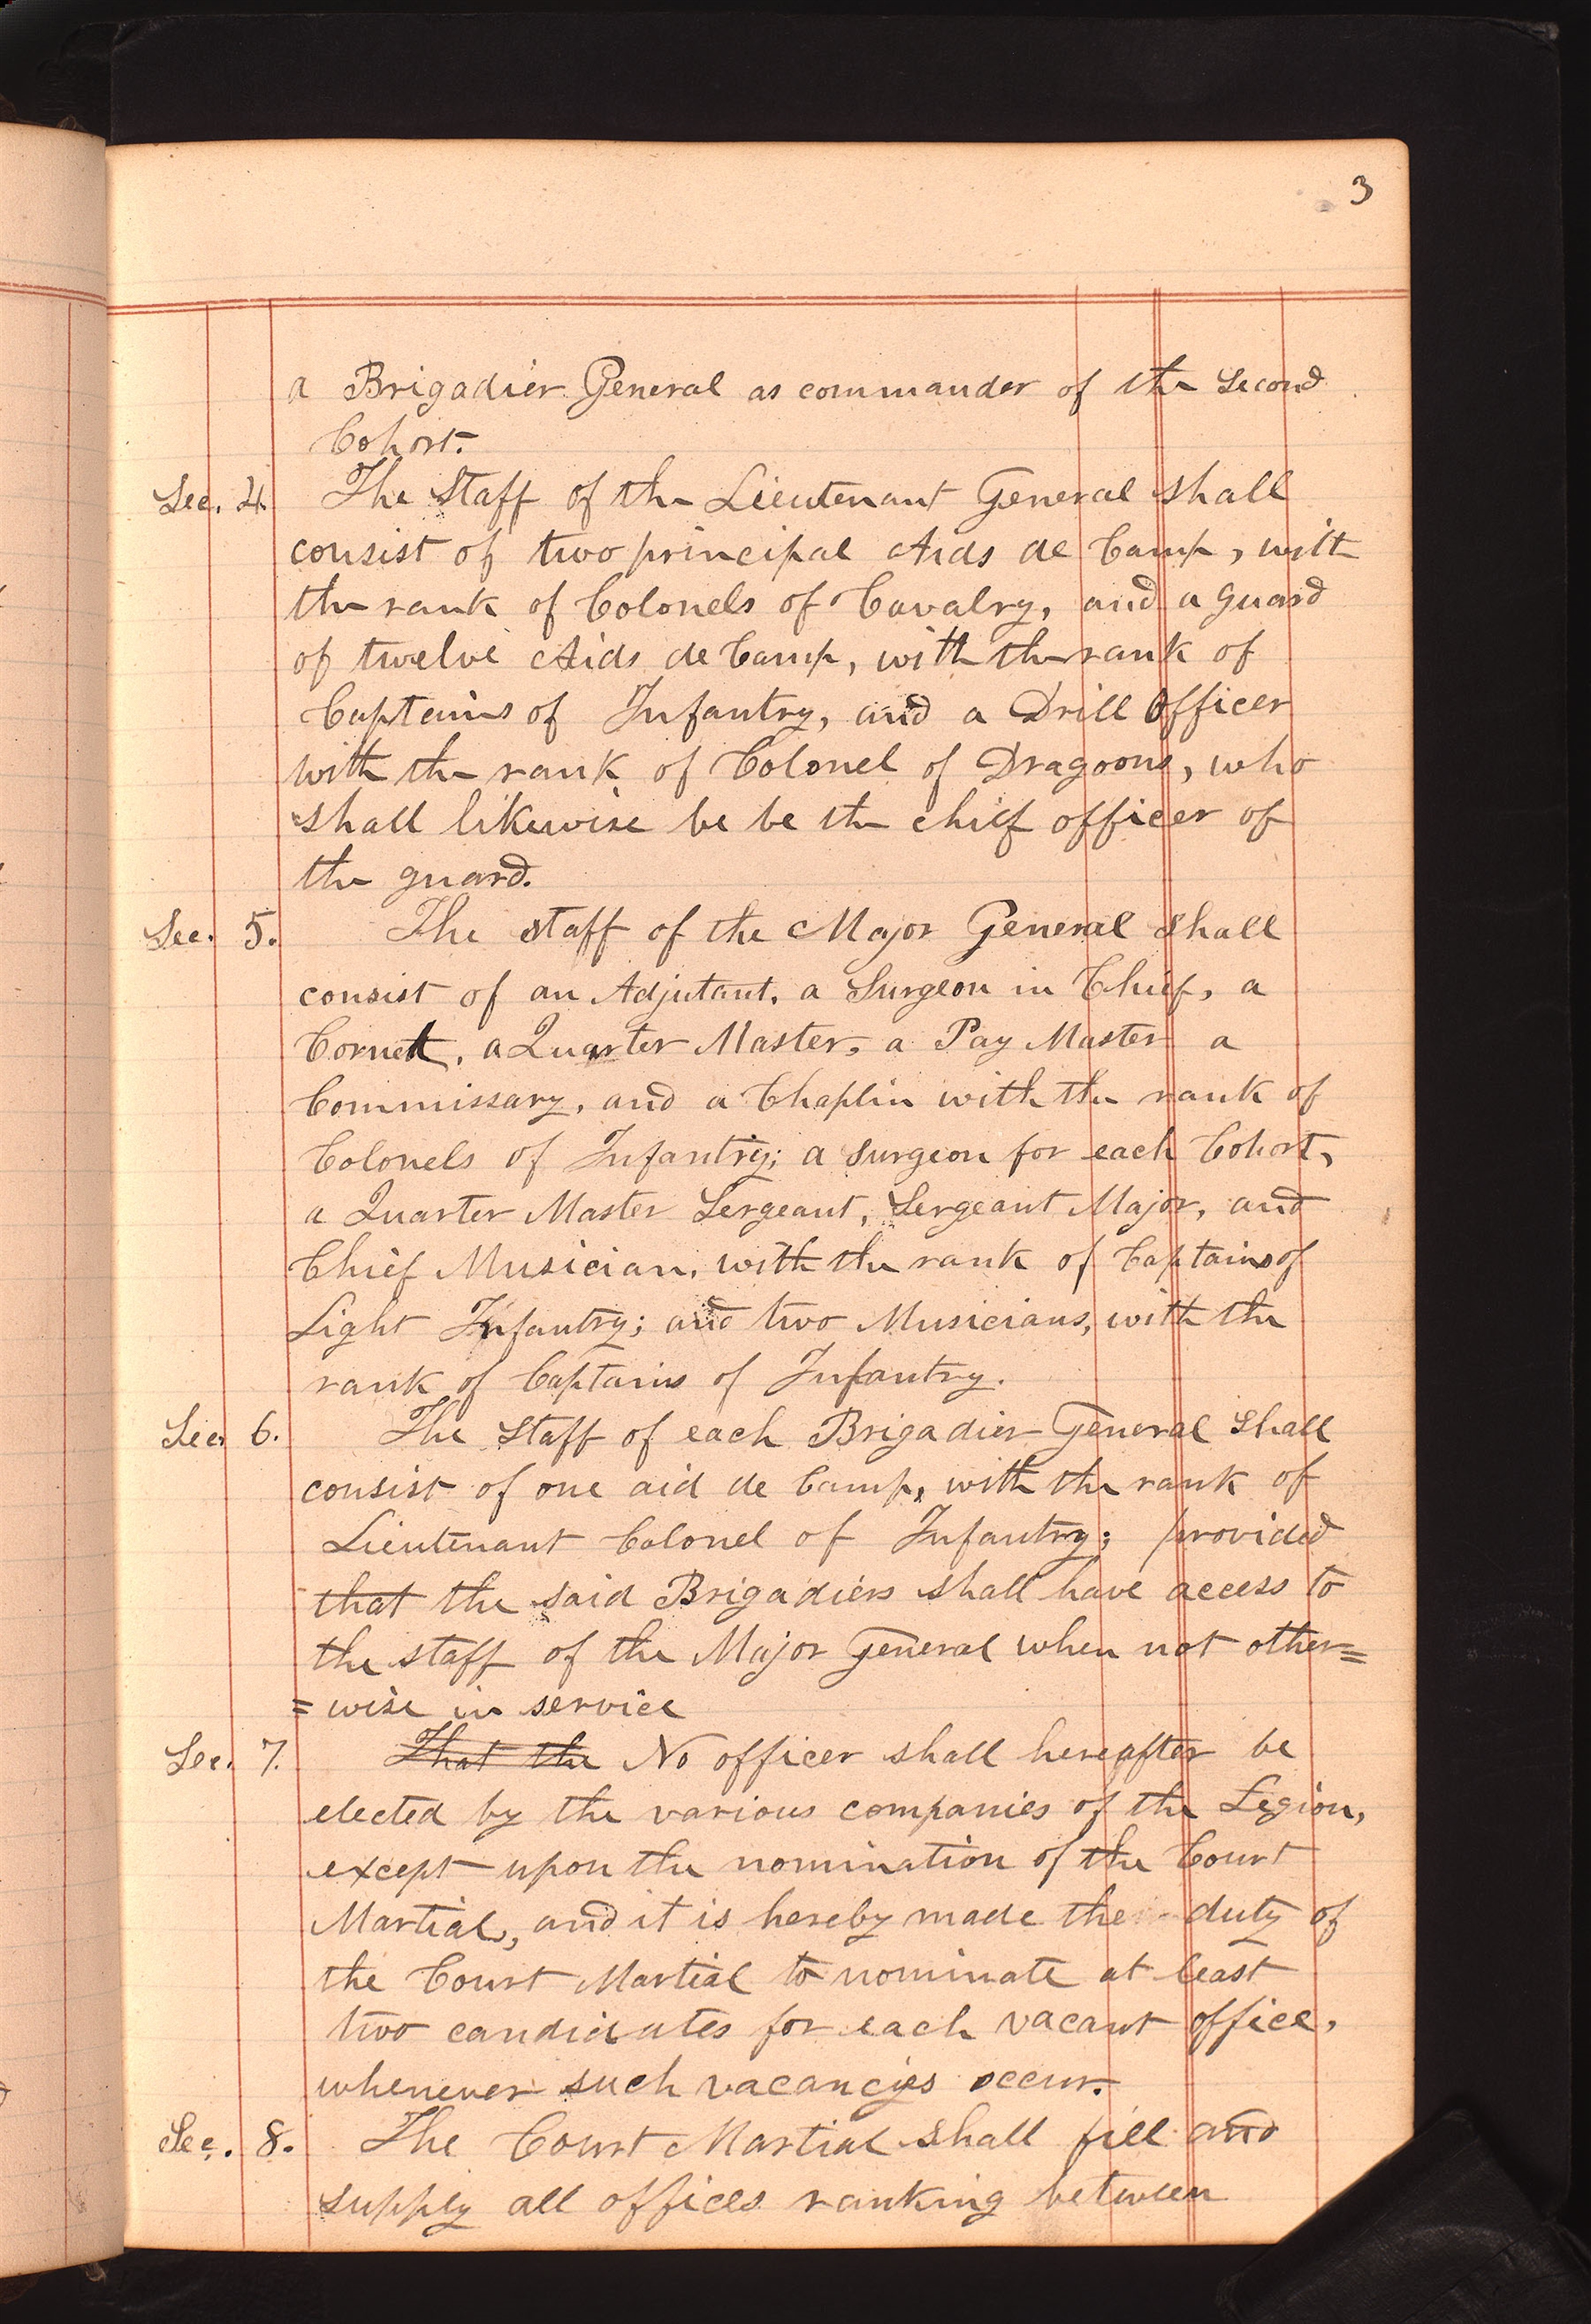 3
a Brigadier General as commander of the Second
Cohort.
Sec. 4. The Staff of the Lieutenant General shall
consist of two principal Aids de Camp, with
the rank of Colonels of Cavalry, and a guard
of twelve Aids de Camp, with the rank of
Captains of Infantry, and a Drill Officer
with the rank of Colonel of Dragoons, who
shall likewise be be the chief officer of
the guard.
Sec. 5. The staff of the Major General shall
consist of an Adjutant, a Surgeon in Chief, a
Cornett, a Quarter Master, a Pay Master a
Commissary, and a Chaplin with the rank of
Colonels of Infantry; a surgeon for each Cohort,
a Quarter Master Sergeant, Sergeant Major, and
Chief Musician, with the rank of Captains of
Light Infantry; and two Musicians, with the
rank of Captains of Infantry.
Sec. 6. The Staff of each Brigadier General Shall
consist of one aid de Camp, with the rank of
Lieutenant Colonel of Infantry; provided
that the said Brigadiers shall have access to
the staff of the Major General when not other=
=wise in service
Sec. 7. That the No officer shall hereafter be
elected by the various companies of the Legion,
except upon the nomination of the Court
Martial, and it is hereby made the duty of
the Court Martial to nominate at least
two candidates for each vacant office,
whenever such vacancies occur.
Sec. 8. The Court Martial shall fill and
supply all offices ranking between